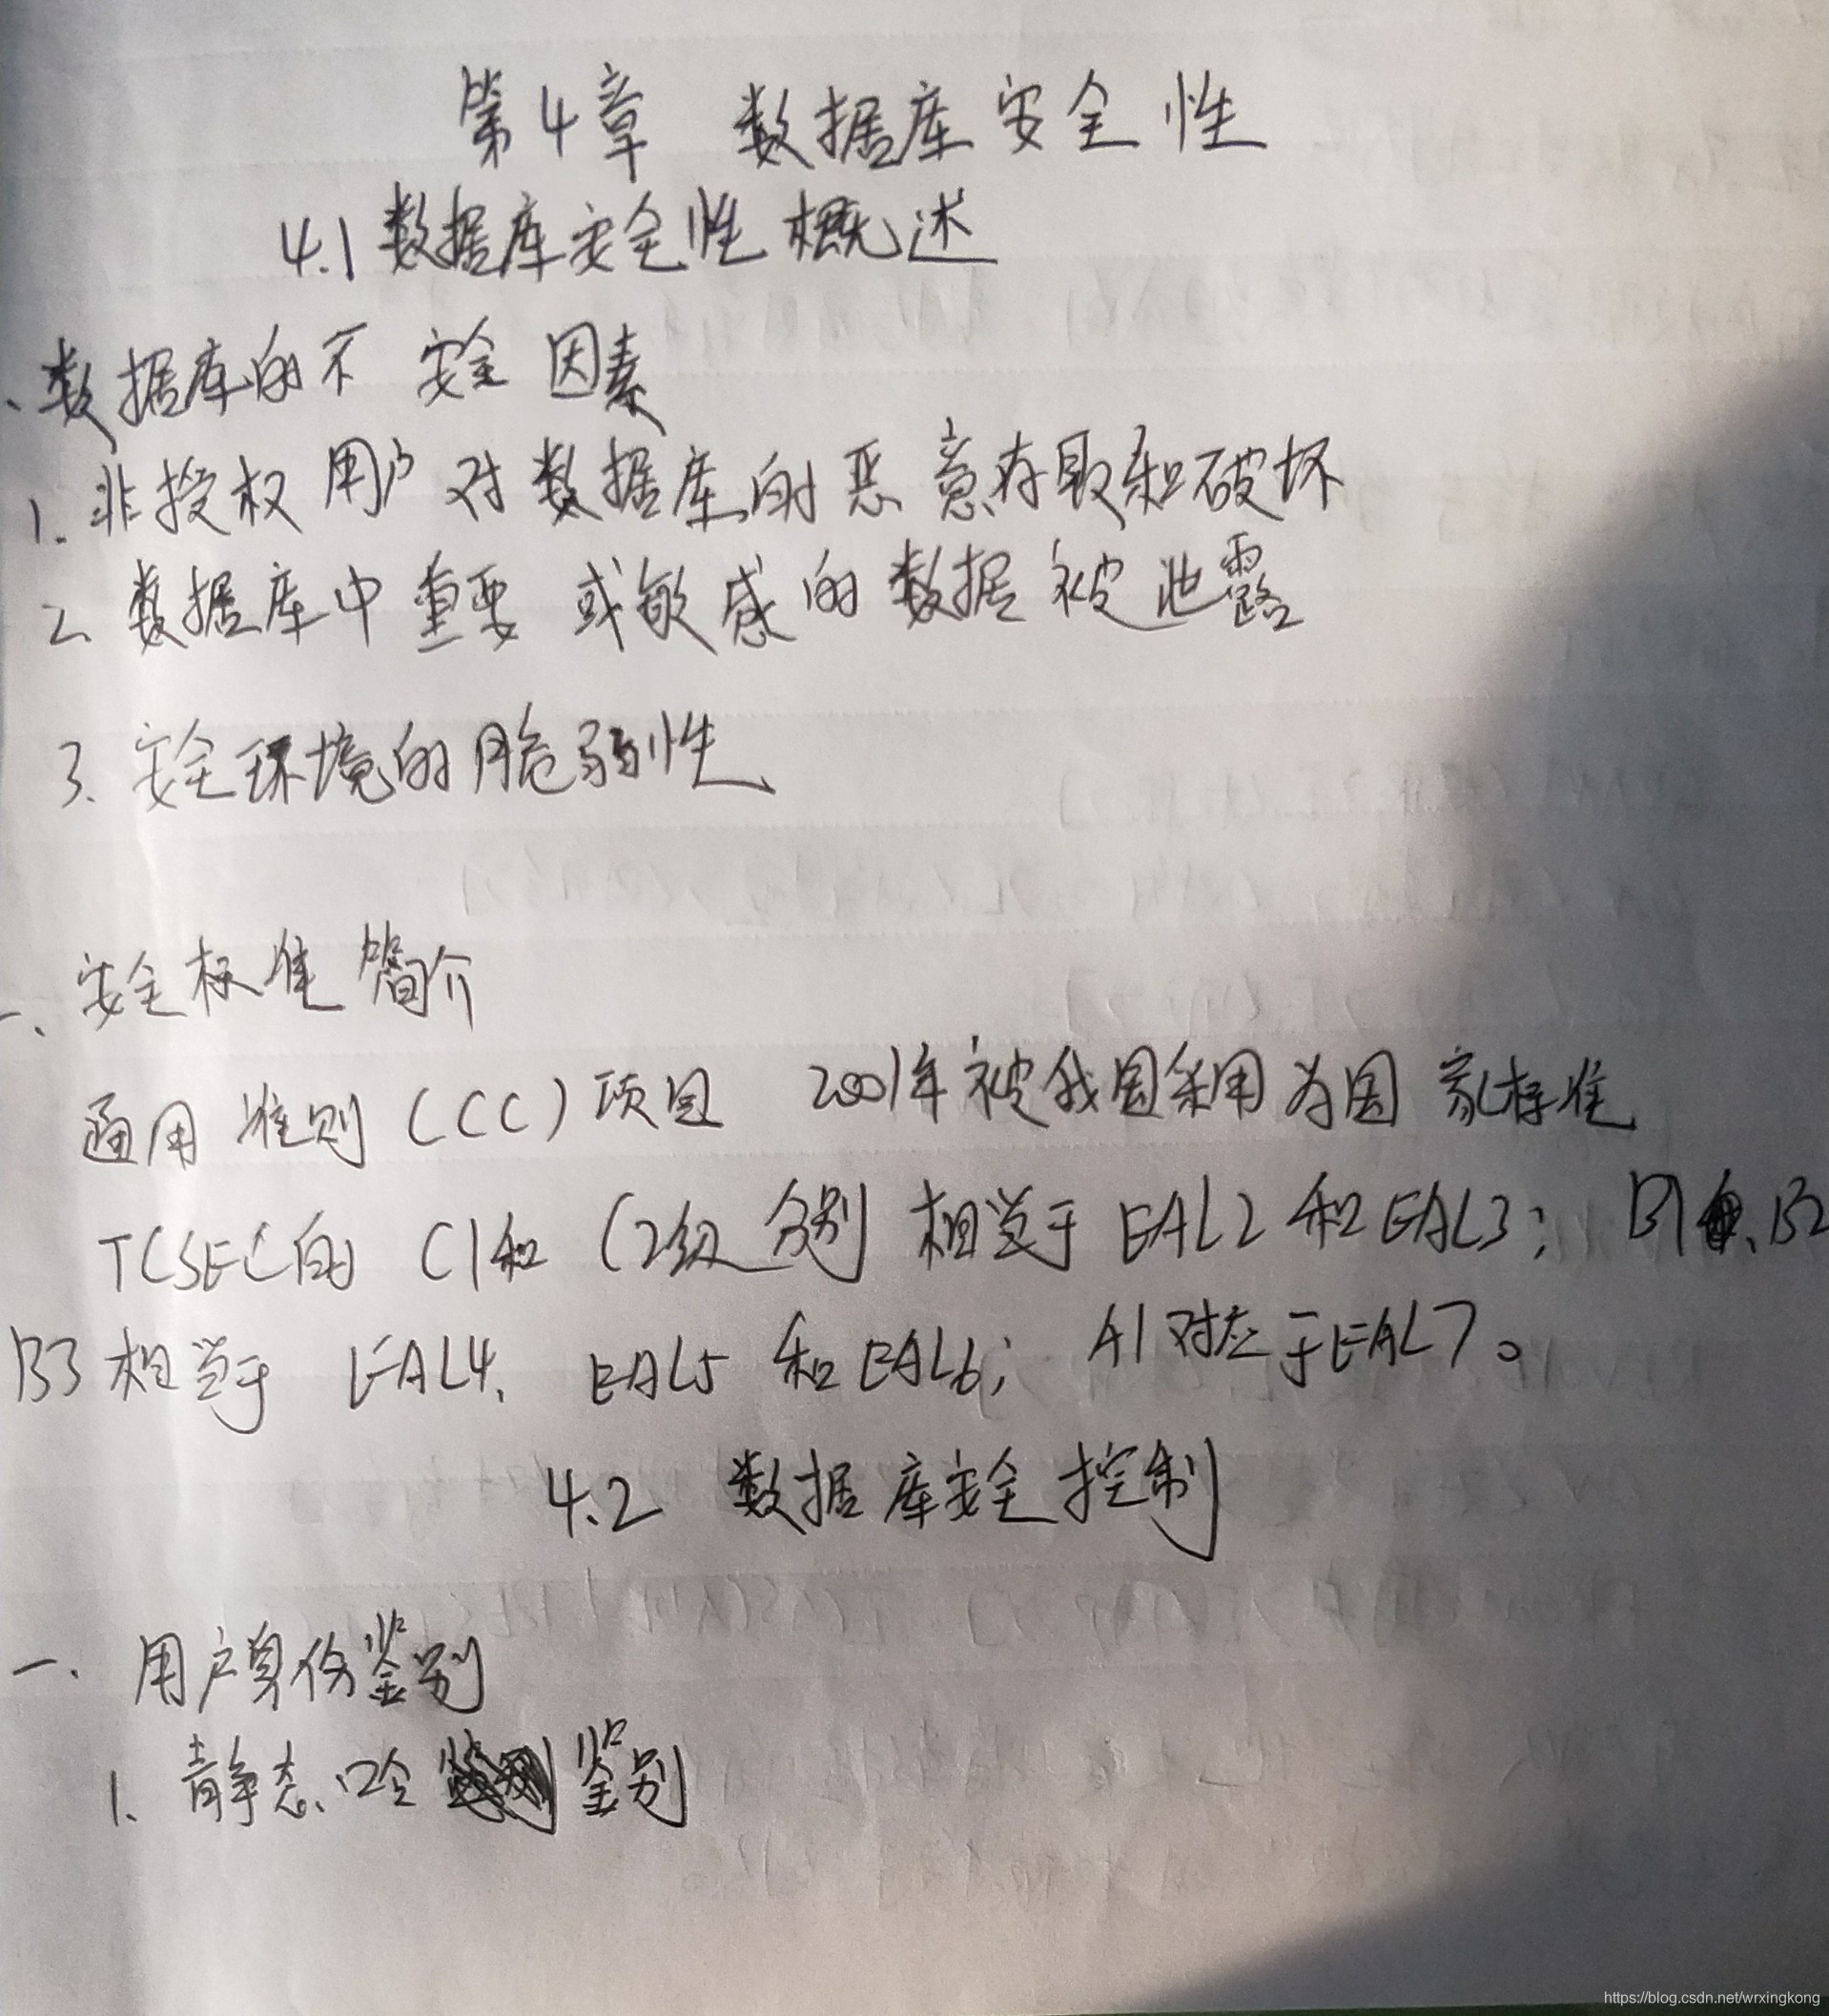 第4章 数据库安全性
4.1 数据库安全性概述
、数据库的不安全因素
1. 非授权用户对数据库的恶意存取和破坏
2. 数据库中重要或敏感的数据被泄露
3. 安全环境的脆弱性
、安全标准简介
通用准则(CC)项目 2001年被我国采用为国家标准
TCSEC的 C1和 C2级分别相当于 EAL2 和 EAL3; B1、B2
B3相当于 EAL4、EAL5 和 EAL6; A1对应于EAL7。
4.2 数据库安全控制
一、用户身份鉴别
1. 静态口令鉴别
https://blog.csdn.net/wrxingkong